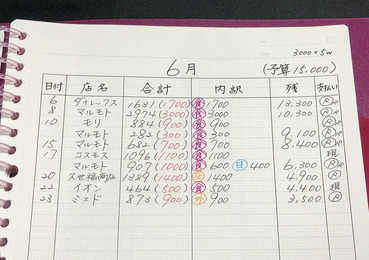 3000×5w
6月 (予算15,000)
日付 店名 合計 内訳 残 支払い
6 ダイレックス 1631 (1700) 食 1700 13,300
8 マルモト 2974 (3000) 食 3000 10,300
10 モリ 884 (900) 食 900
マルモト 282 (300) 食 300 9,100
15 マルモト 682 (700) 食 700 8,400
17 コスモス 1096 (1100) 食 1100 現
マルモト 907 (1000) 食 600 日 400 6,300
20 1389 (1400) 1400 4,900
22 イオン 464 (500) 食 500 4,400 現
23 ミスド 873 (900) 外 900 3,500